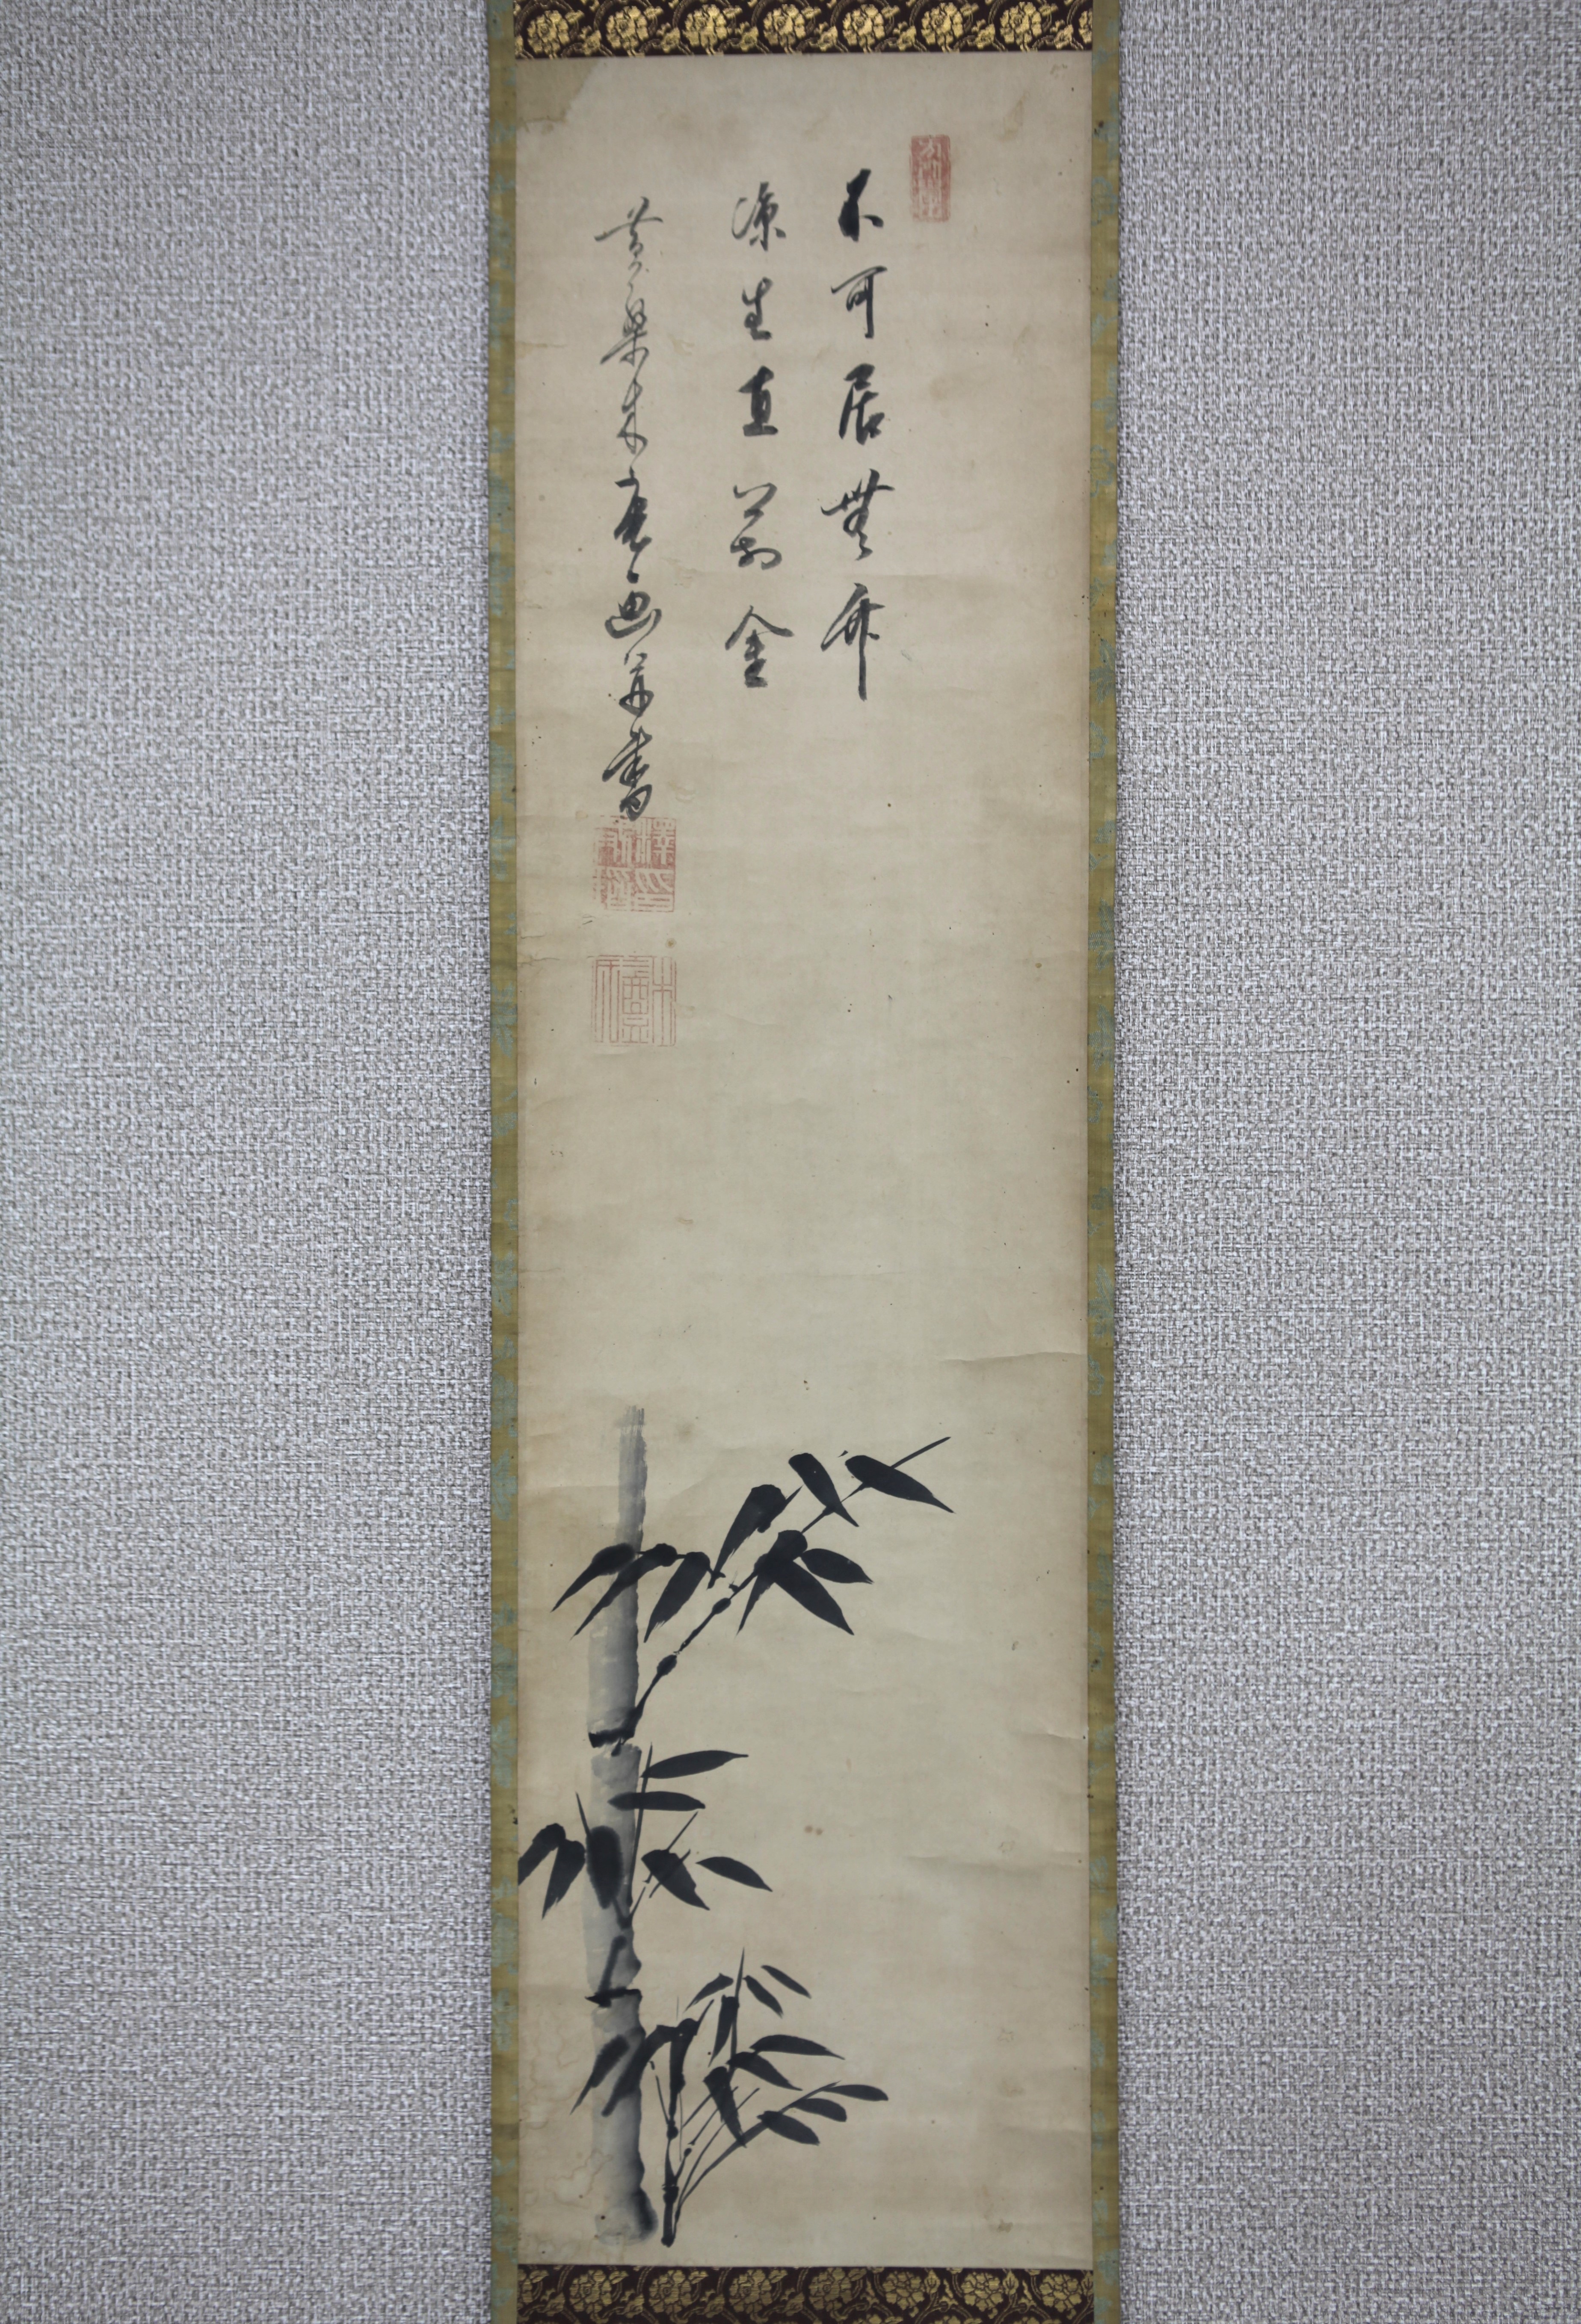 不可居無竹
凉生直萬金
黄檗木庵画并書